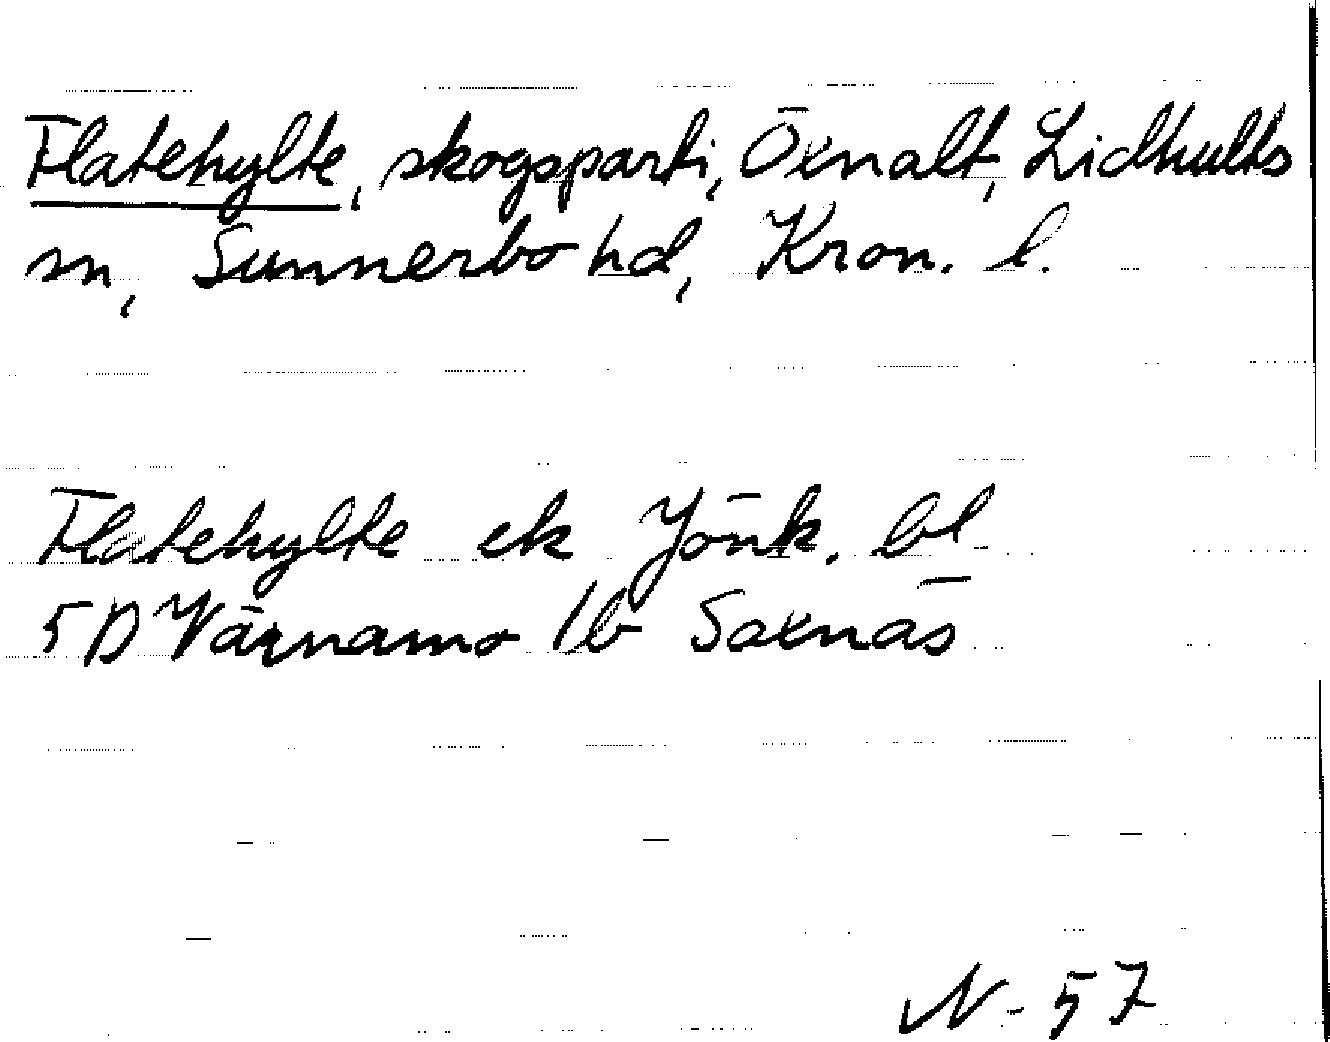 Flatehylte, skogsparti, Öxnalt, Lidhults
sn, Sunnerbo hd, Kron. l.
Flatehylte ek Jönk. bl
5D Värnamo 1b Saxnäs
N-57